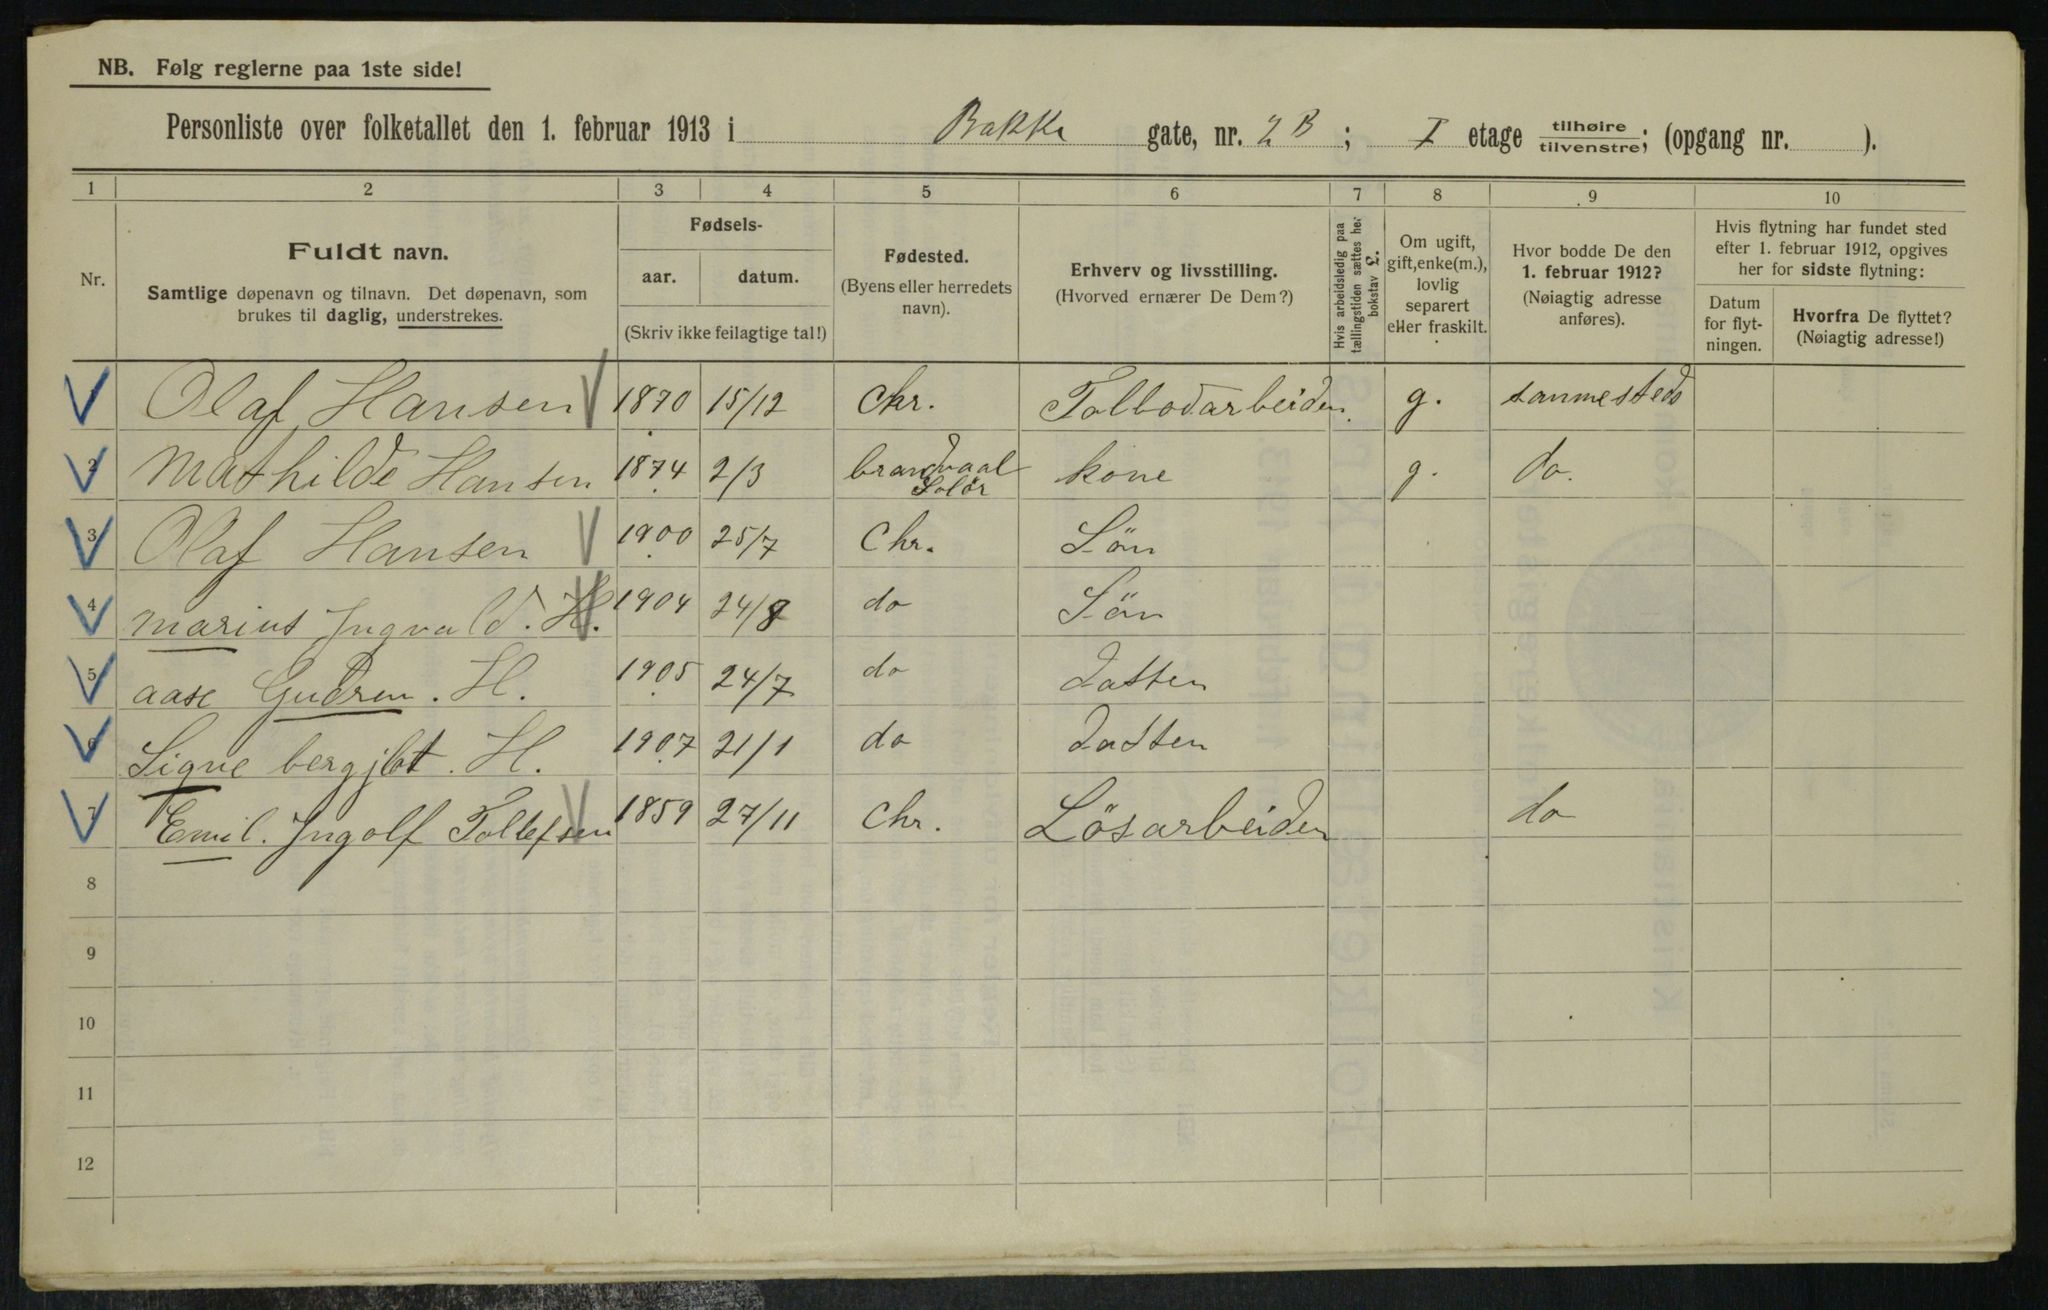 NB. Følg reglerne paa 1ste side!
Personliste over folketallet den 1. februar 1913 i Bakke gate, nr. 2 B; I etage tilhøire/tilvenstre; (opgang nr. ).
1 2 3 4 5 6 7 8 9 10
Nr.
Fuldt navn.
Samtlige døpenavn og tilnavn. Det døpenavn, som
brukes til daglig, understrekes.
Fødsels-
aar. datum.
(Skriv ikke feilagtige tal!)
Fødested.
(Byens eller herredets
navn).
Erhverv og livsstilling.
(Hvorved ernærer De Dem?)
Hvis arbeidsledig paa
tællingstiden sættes her
bokstav L.
Om ugift,
gift, enke(m.),
lovlig
separert
eller fraskilt.
Hvor bodde De den
1. februar 1912?
(Nøiagtig adresse
anføres).
Hvis flytning har fundet sted
efter 1. februar 1912, opgives
her for sidste flytning:
Datum
for flyt-
ningen.
Hvorfra De flyttet?
(Nøiagtig adresse!)
Olaf Hansen 1870 15/12 Chr. Tolbodarbeider g. sammesteds
2 Mathilde Hansen 1874 2/3 brandvaal Solör kone g. do.
3 Olaf Hansen 1900 25/7 Chr. Sön
4 Marius Ingvald. H. 1904 24/8 do Sön
5 aase Gudren. H. 1905 24/7 do Datten
6 Signe bergjlot. H. 1907 21/1 do Datten
7 Emil. Ingolf Tollefsen 1859 27/11 Chr. Lösarbeider do
8
9
10
11
12